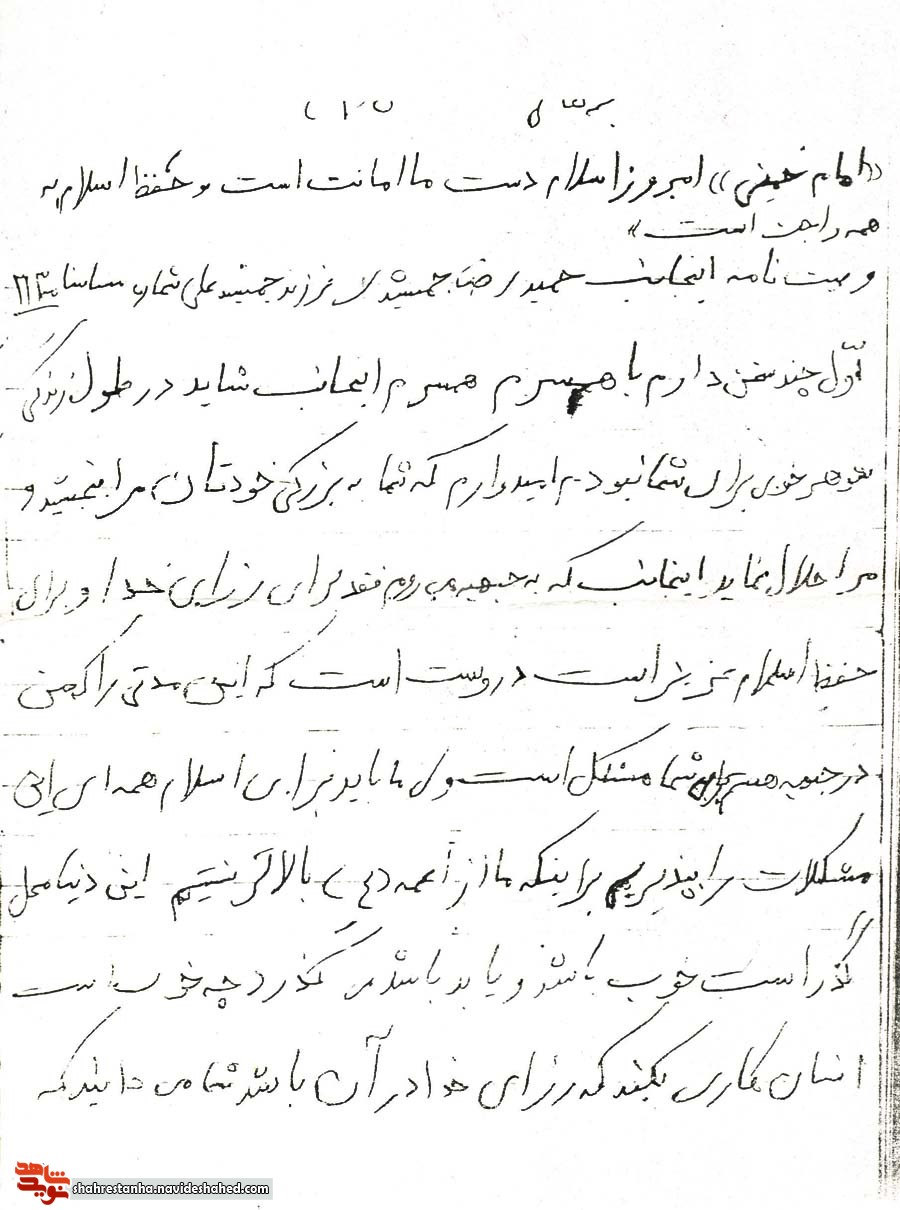 «امام خمینی» امروز اسلام دست ما امانت است و حفظ اسلام به
همه واجب است»
وصیت نامه اینجانب حمید رضا جمشیدی فرزند جمشید علی شماره شناسنامه
اول چند سخن دارم با همسرم همسرم اینجانب شاید در طول زندگی
شوهر خوبی برای شما نبودم امیدوارم که شما به بزرگی خودتان مرا ببخشید و
مرا حلال نماید اینجانب که به جبهه می روم فقد برای رزای خدا و برای
حفظ اسلام عزیز است دروست است که این مدتی را که من
در جبهه هستم برای شما مشکل است ولی ما باید برای اسلام همه ای این
مشکلات را بپذیریم براینکه ما از أعمه (ع) بالاتر نیستیم این دنیا محل
گذر است خوب باشد و یا بد باشد می گذرد چه خوب است
انسان کاری بکند که رزای خدا در آن باشد شما می دانید که
نوید شاهد
shahrestanha.navideshahed.com